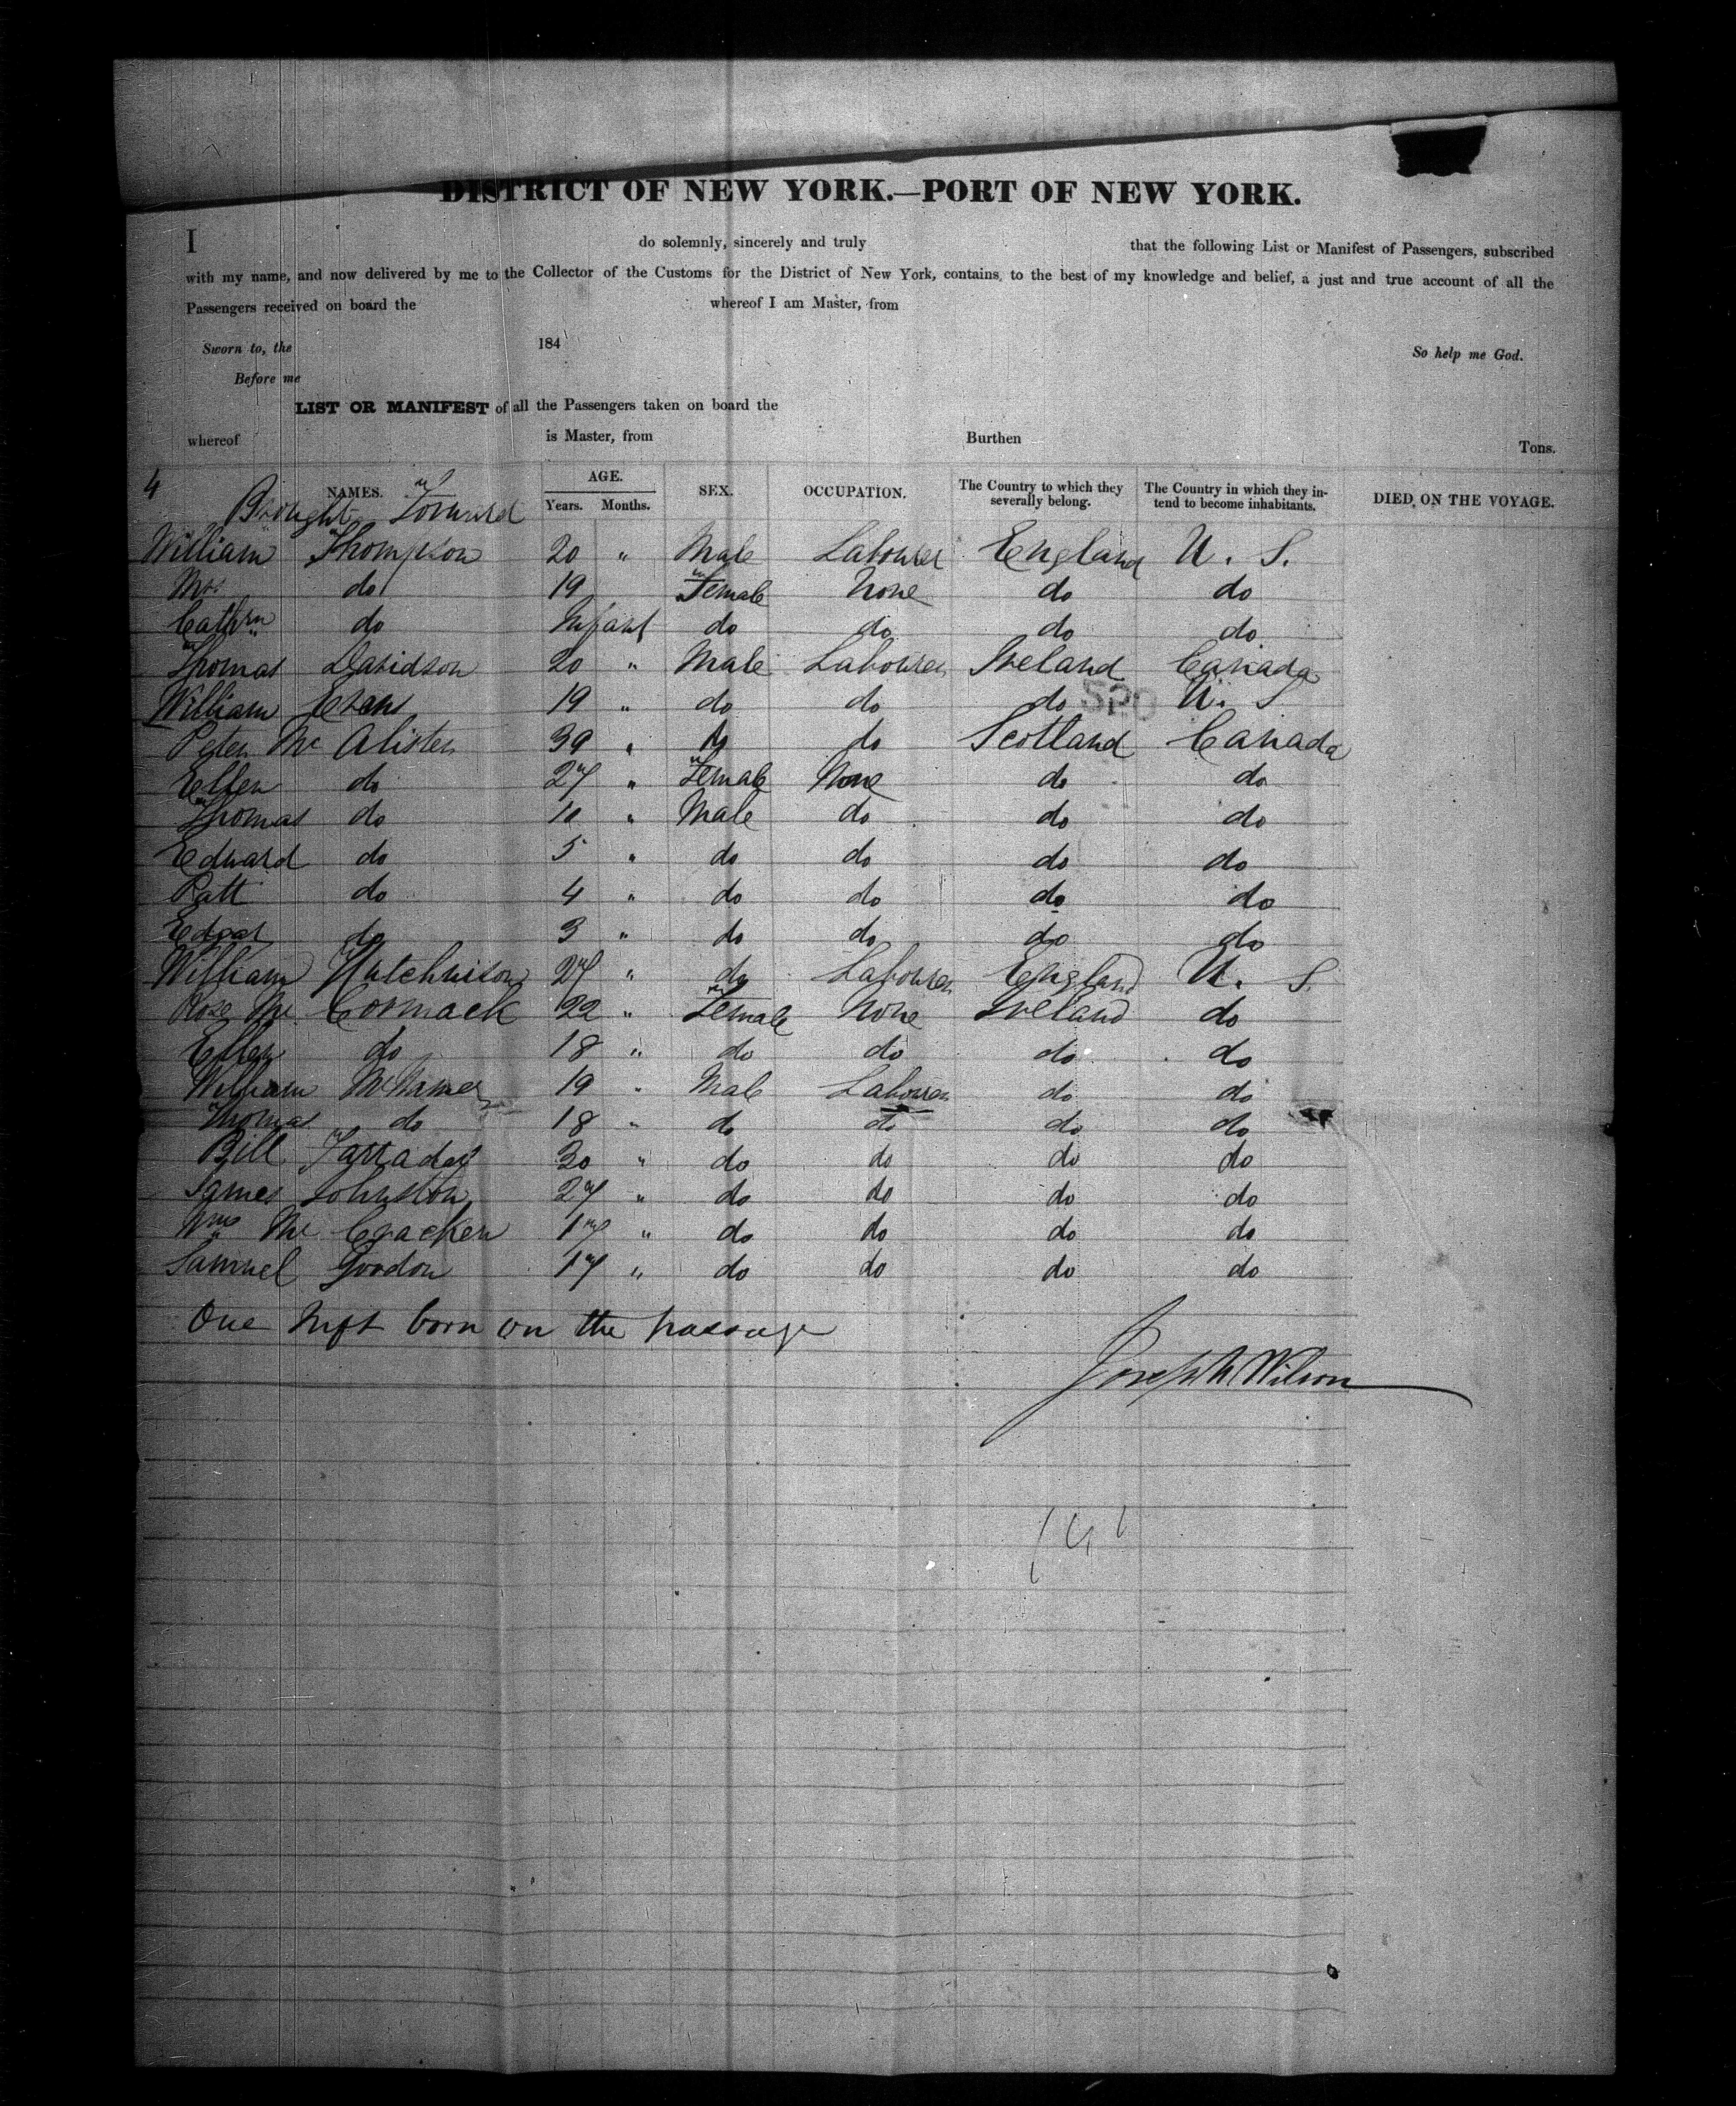 DISTRICT OF NEW YORK.—PORT OF NEW YORK.
I do solemnly, sincerely and truly that the following List or Manifest of Passengers, subscribed
with my name, and now delivered by me to the Collector of the Customs for the District of New York, contains, to the best of my knowledge and belief, a just and true account of all the
Passengers received on board the whereof I am Master, from
Sworn to, the 184 So help me God.
Before me
LIST OR MANIFEST of all the Passengers taken on board the
whereof is Master, from Burthen Tons.
4 NAMES. AGE. Years. Months. SEX. OCCUPATION. The Country to which they severally belong. The Country in which they intend to become inhabitants. DIED ON THE VOYAGE.
Brought Forward
William Thompson 20 " Male Labourer England U. S.
Mrs do 19 Female None do do
Cathrn do Infant do do do do
Thomas Davidson 20 " Male Labourer Ireland Canada
William Evens 19 " do do do U. S
520
Peter Mc Alister 39 " do do Scotland Canada
Ellen do 27 " Female None do do
Thomas do 10 " Male do do do
Edward do 5 " do do do do
Patt do 4 " do do do do
Edgar do 3 " do do do do
William Hutchinson 27 " do Labourer England U. S.
Rose Mc Cormack 22 " Female None Ireland do
Ellen do 18 " do do do do
William McNamee 19 " Male Labourer do do
Thomas do 18 " do do do do
Bill Farraday 30 " do do do do
James Johnston 27 " do do do do
Wm Mc Cracken 17 " do do do do
Samuel Gordon 17 " do do do do
One Inft born on the passage
Joseph Wilson